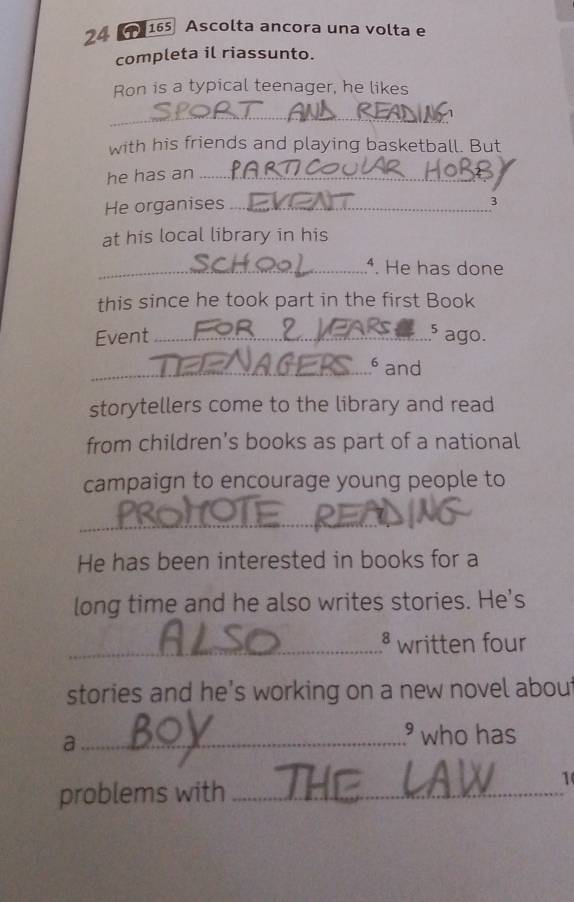 24 165 Ascolta ancora una volta e
completa il riassunto.
Ron is a typical teenager, he likes
SPORT AND READING
with his friends and playing basketball. But
he has an PARTICOULAR HOBBY
He organises EVENT 3
at his local library in his
SCHOOL 4. He has done
this since he took part in the first Book
Event FOR 2 YEARS 5 ago.
TEENAGERS 6 and
storytellers come to the library and read
from children's books as part of a national
campaign to encourage young people to
PROMOTE READING
He has been interested in books for a
long time and he also writes stories. He's
ALSO 8 written four
stories and he's working on a new novel about
a BOY 9 who has
problems with THE LAW 10